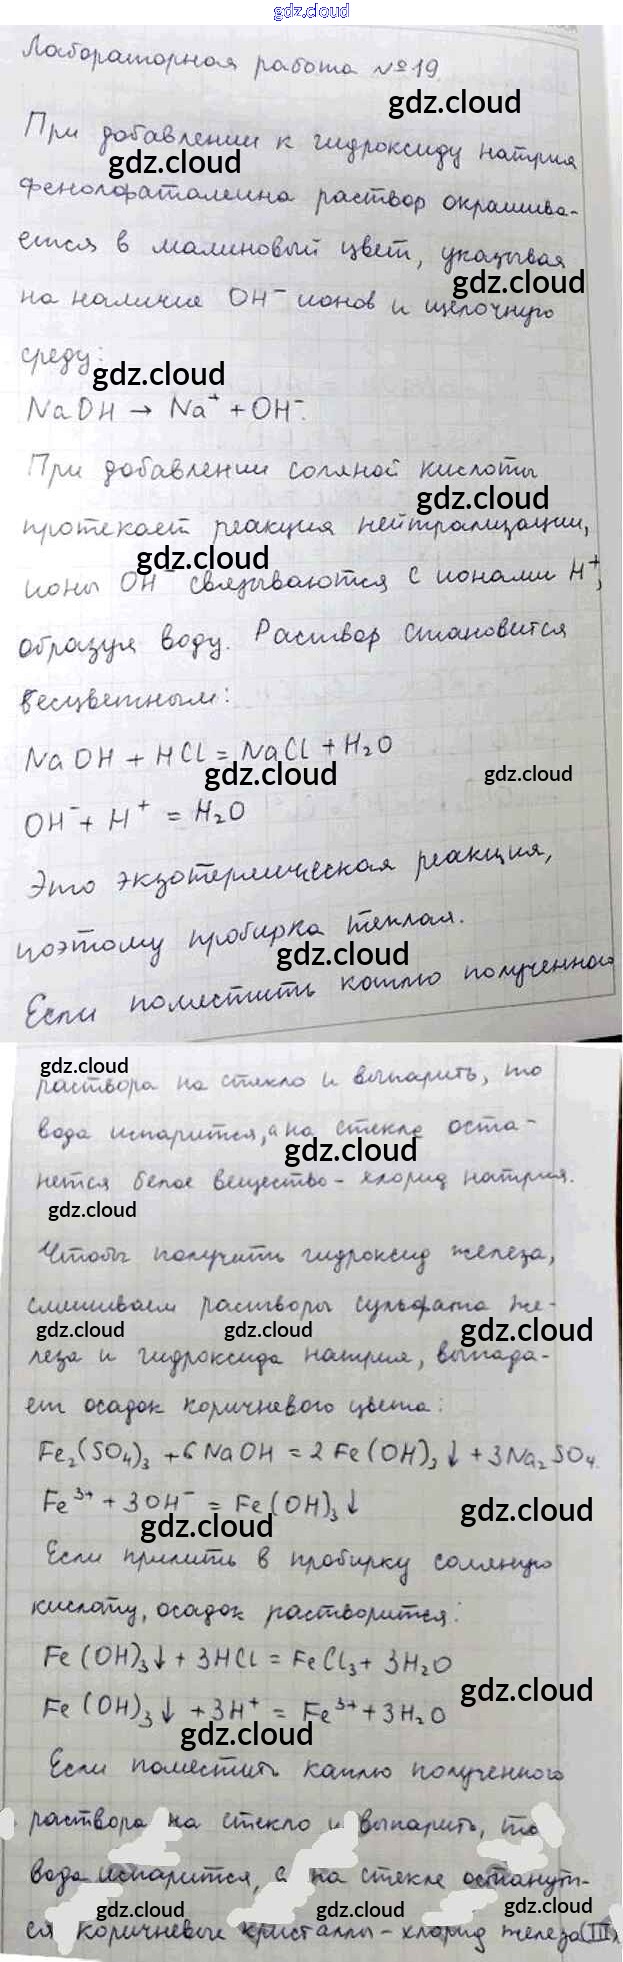 gdz.cloud
Лабораторная работа №19.
gdz.cloud
При добавлении к гидроксиду натрия
gdz.cloud
фенолфаталеина раствор окрашива-
ется в малиновый цвет, указывая
gdz.cloud
на наличие OH⁻ ионов и щелочную
среду:
gdz.cloud
NaOH → Na⁺ + OH⁻.
При добавлении соляной кислоты
gdz.cloud
протекает реакция нейтрализации,
gdz.cloud
ионы OH⁻ связываются с ионами H⁺,
образуя воду. Раствор становится
бесцветным:
NaOH + HCl = NaCl + H₂O
gdz.cloud gdz.cloud
OH⁻ + H⁺ = H₂O
Это экзотермическая реакция,
поэтому пробирка теплая.
gdz.cloud
Если поместить каплю полученного
gdz.cloud
раствора на стекло и выпарить, то
вода испарится, а на стекле оста-
gdz.cloud
нется белое вещество - хлорид натрия.
gdz.cloud
Чтобы получить гидроксид железа,
смешиваем растворы сульфата же-
gdz.cloud gdz.cloud gdz.cloud
леза и гидроксида натрия, выпада-
ет осадок коричневого цвета:
Fe₂(SO₄)₃ + 6NaOH = 2Fe(OH)₃↓ + 3Na₂SO₄.
Fe³⁺ + 3OH⁻ = Fe(OH)₃↓
gdz.cloud
gdz.cloud
Если прилить в пробирку соляную
кислоту, осадок растворится:
Fe(OH)₃↓ + 3HCl = FeCl₃ + 3H₂O
gdz.cloud
Fe(OH)₃↓ + 3H⁺ = Fe³⁺ + 3H₂O
gdz.cloud
Если поместить каплю полученного
раствора на стекло и выпарить, то
вода испарится, а на стекле останут-
gdz.cloud gdz.cloud gdz.cloud
ся коричневые кристаллы - хлорид железа(III)